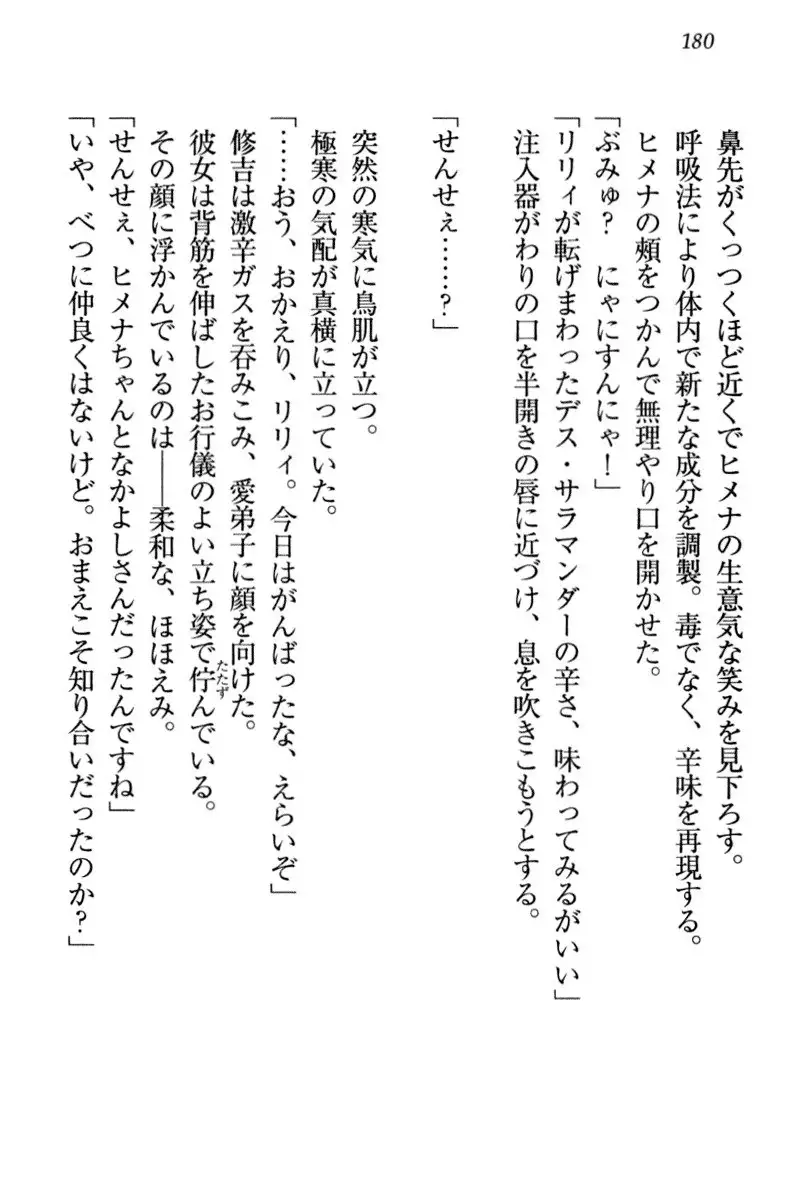 180
鼻先がくっつくほど近くでヒメナの生意気な笑みを見下ろす。
呼吸法により体内で新たな成分を調製。毒でなく、辛味を再現する。
ヒメナの頰をつかんで無理やり口を開かせた。
「ぶみゅ？　にゃにすんにゃ！」
「リリィが転げまわったデス・サラマンダーの辛さ、味わってみるがいい」
注入器がわりの口を半開きの唇に近づけ、息を吹きこもうとする。
「せんせぇ……？」
突然の寒気に鳥肌が立つ。
極寒の気配が真横に立っていた。
「……おう、おかえり、リリィ。今日はがんばったな、えらいぞ」
修吉は激辛ガスを呑みこみ、愛弟子に顔を向けた。
彼女は背筋を伸ばしたお行儀のよい立ち姿で佇んでいる。
たたず
その顔に浮かんでいるのは――柔和な、ほほえみ。
「せんせぇ、ヒメナちゃんとなかよしさんだったんですね」
「いや、べつに仲良くはないけど。おまえこそ知り合いだったのか？」